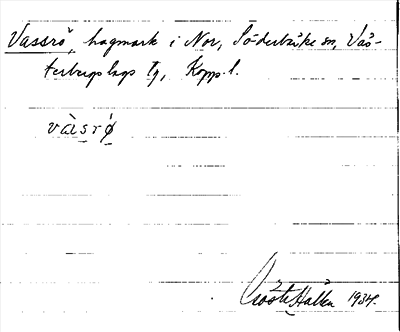 Vassrö, hagmark i Nor, Söderbärke sn, Väs-
terbergslags tg, Kopp. l.
vàsrǿ
Gösta Hallén 1934.